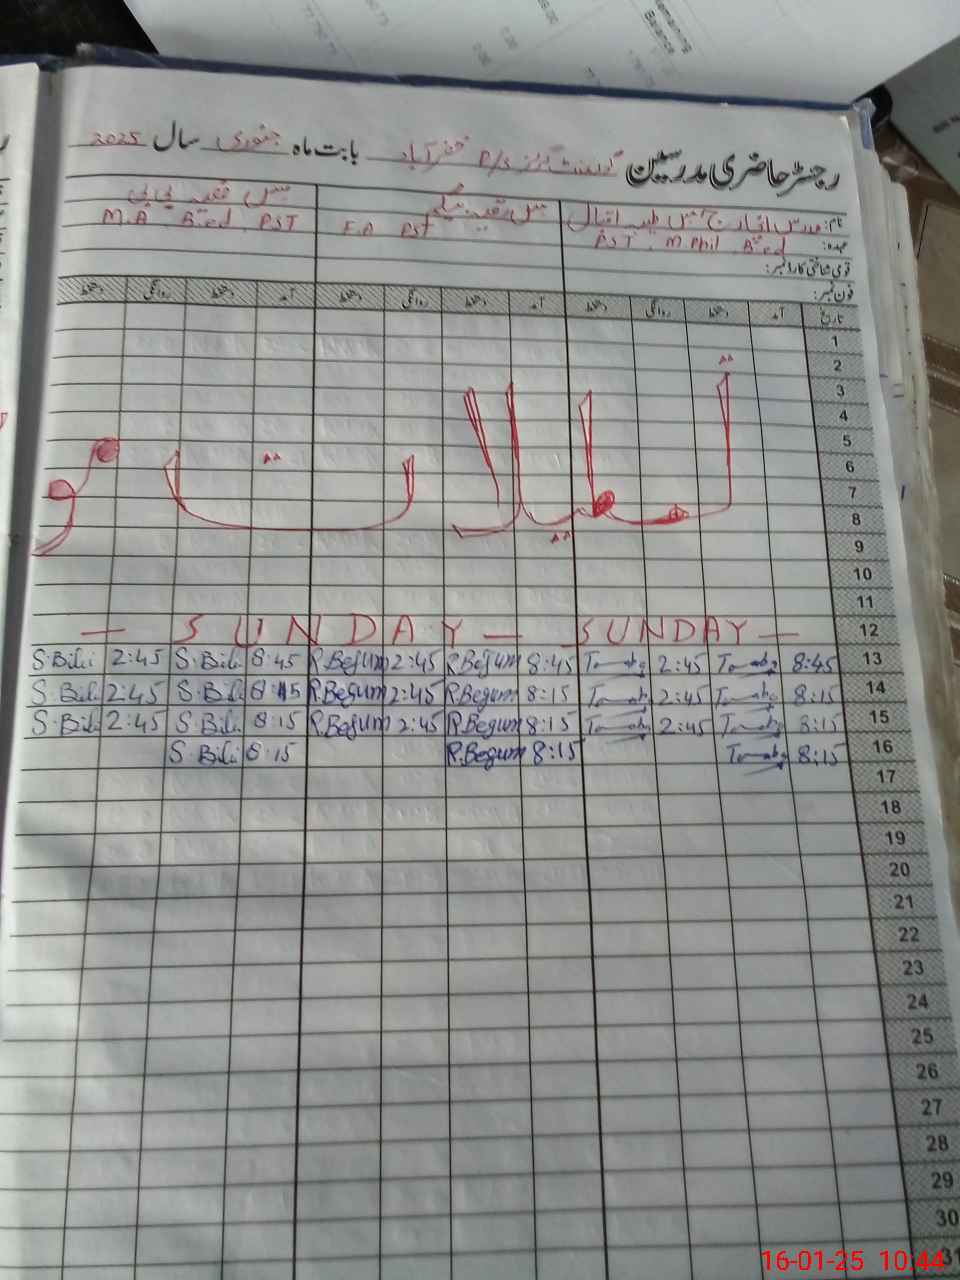 Remaining
Balance
رجسٹر حاضری مدرسین گورنمنٹ گرلز P/S خضر آباد بابت ماہ جنوری سال 2025
نام: مدرس انچارج مس طیبہ اقبال مس رقیہ بیگم مس بی بی
عہدہ: PST M.Phil B.ed F.A PST M.A B.ed PST
قومی شناختی کارڈ نمبر:
فون نمبر:
تاریخ آمد دستخط روانگی دستخط آمد دستخط روانگی دستخط آمد دستخط روانگی دستخط
1
2
3
4
5
6
7
8
تعطیلات
9
10
11
— SUNDAY — SUNDAY — 12
S.Bibi 2:45 S.Bibi 8:45 R.Begum 2:45 R.Begum 8:45 2:45 8:45 13
S.Bibi 2:45 S.Bibi 8:15 R.Begum 2:45 R.Begum 8:15 2:45 8:15 14
S.Bibi 2:45 S.Bibi 8:15 R.Begum 2:45 R.Begum 8:15 2:45 8:15 15
S.Bibi 8:15 R.Begum 8:15 8:15 16
17
18
19
20
21
22
23
24
25
26
27
28
29
30
31
16-01-25 10:44